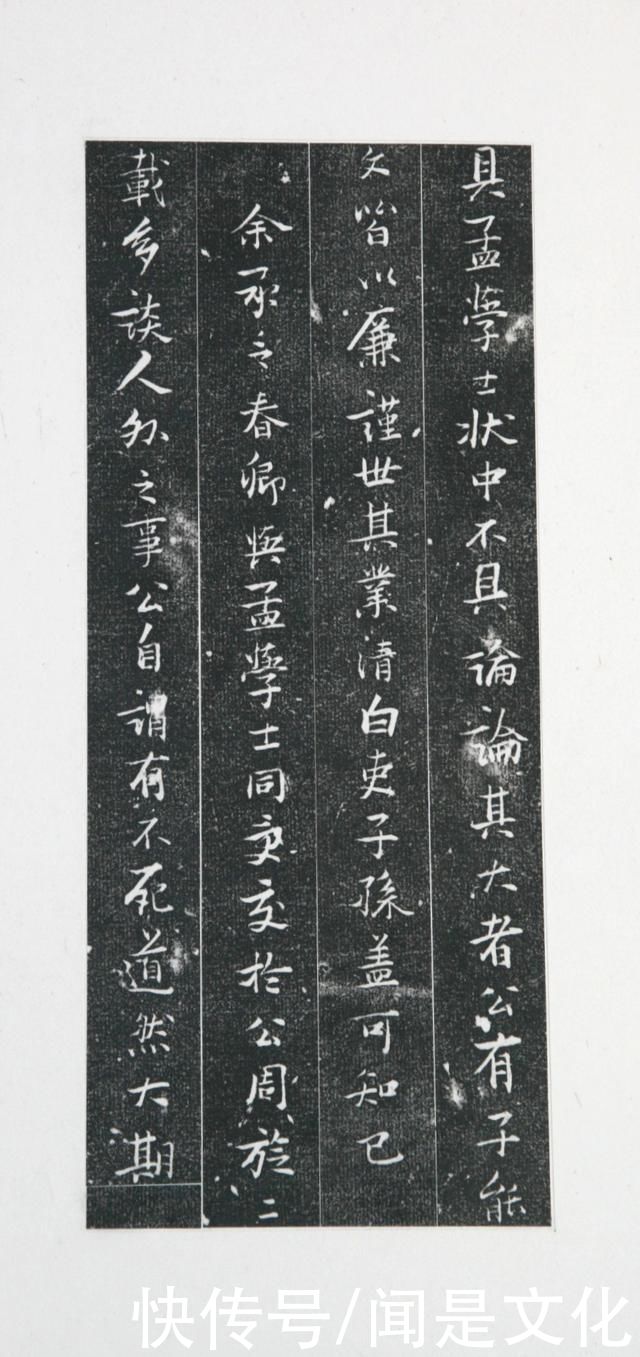 具孟學士狀中不具論論其大者公有子能
文皆以廉謹世其業清白吏子孫蓋可知已
余承之春卿與孟學士同更交於公周旋二
載多談人外之事公自謂有不死道然大期
快传号/闻是文化